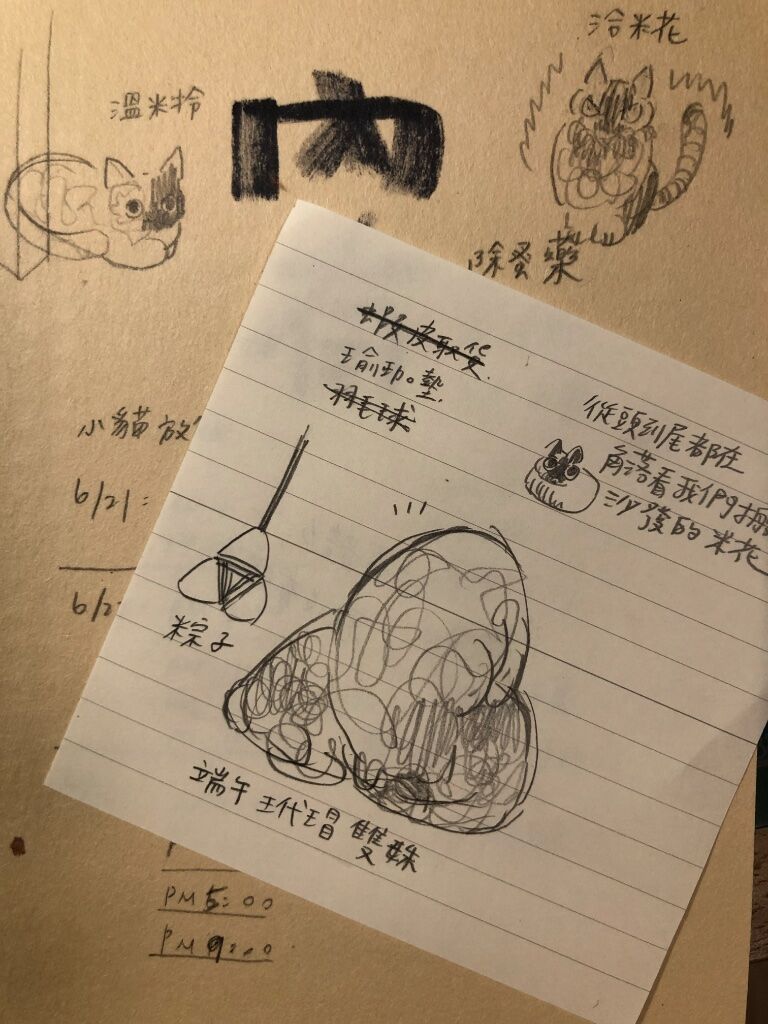 洽米花
溫米拎
內
除蚤藥
小貓放
6/21:
6/2
PM 5:00
PM 9:00
蝦皮取貨
瑜珈墊
羽毛球
從頭到尾都在
角落看我們搬
沙發的米花
粽子
端午玳瑁雙姝